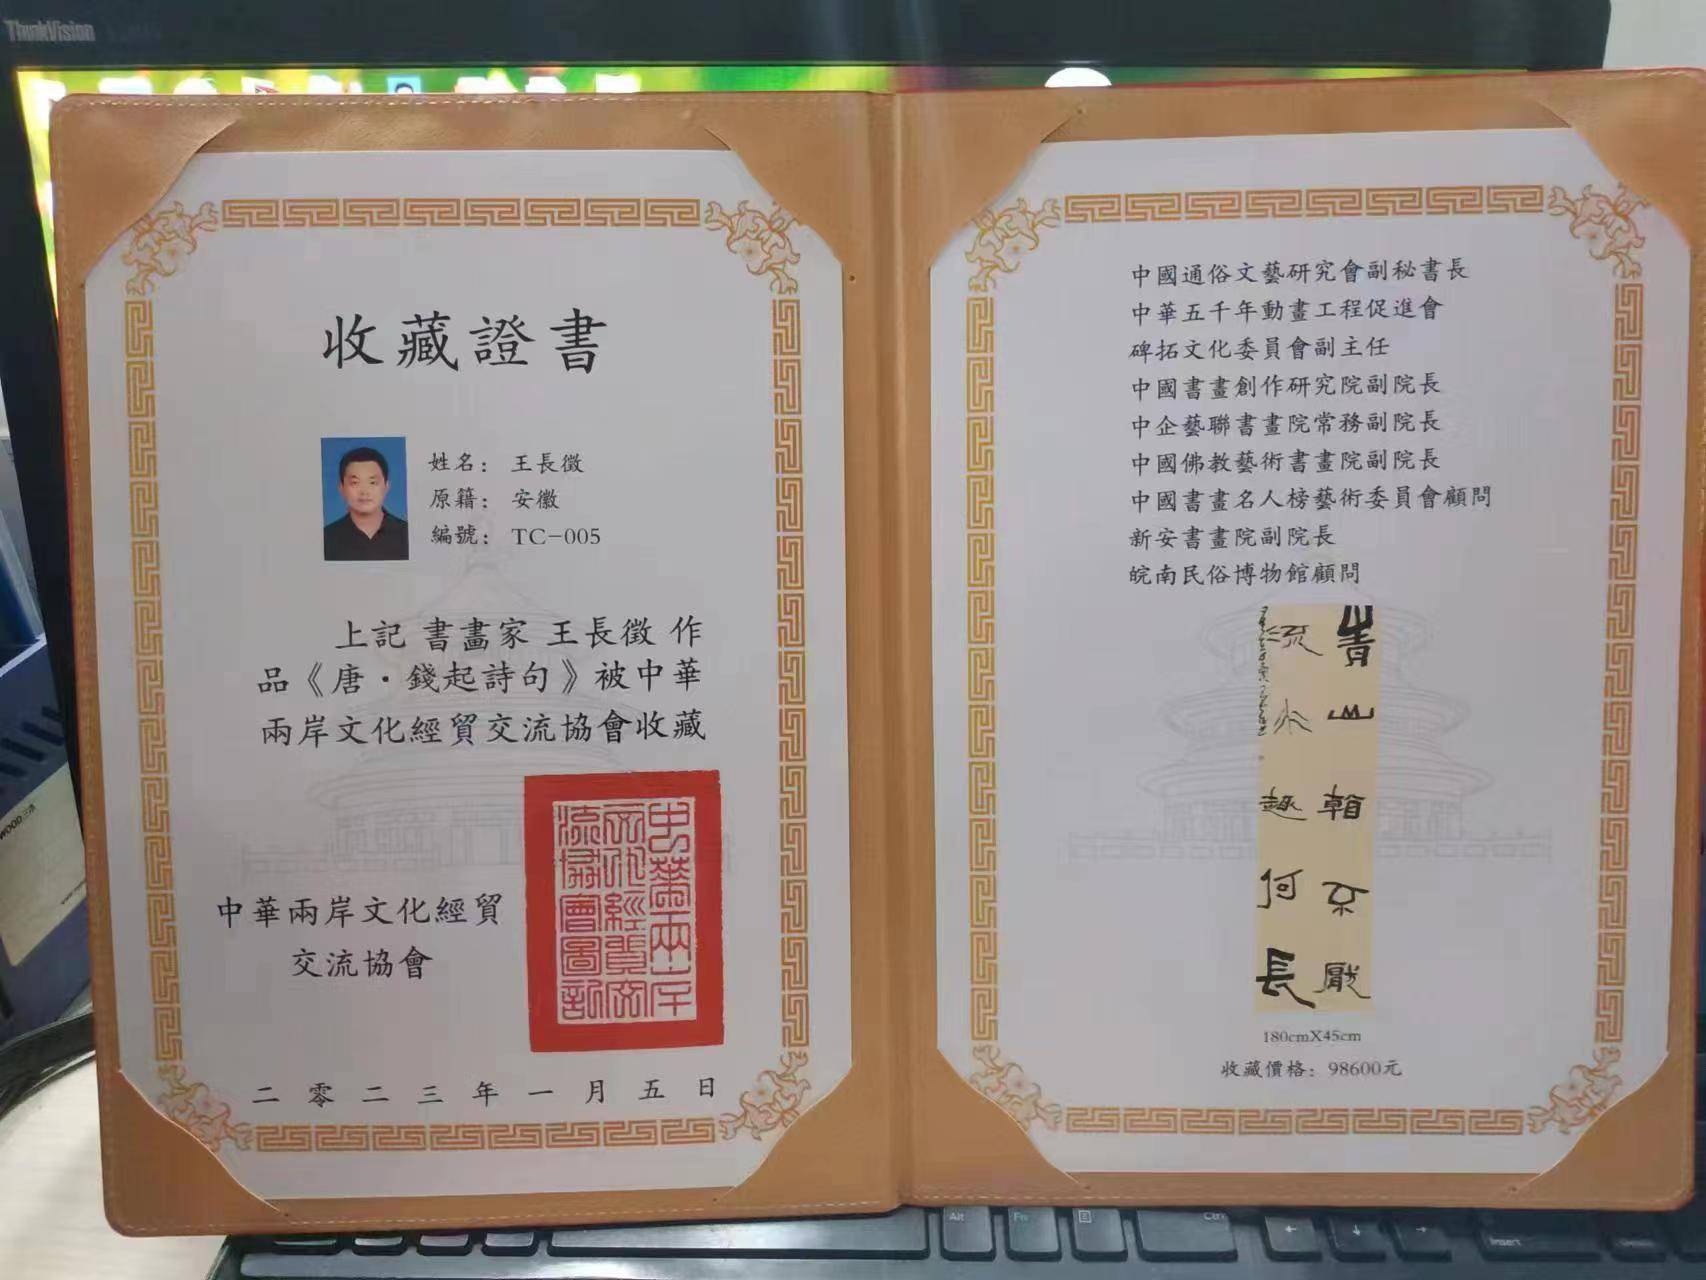 ThinkVision
收藏證書
姓名：王長徵
原籍：安徽
編號：TC-005
上記 書畫家 王長徵 作
品《唐·錢起詩句》被中華
兩岸文化經貿交流協會收藏
中華兩岸文化經貿
交流協會
中華兩岸
文化經貿交
流協會圖記
二零二三年一月五日
中國通俗文藝研究會副秘書長
中華五千年動畫工程促進會
碑拓文化委員會副主任
中國書畫創作研究院副院長
中企藝聯書畫院常務副院長
中國佛教藝術書畫院副院長
中國書畫名人榜藝術委員會顧問
新安書畫院副院長
皖南民俗博物館顧問
青山看不厭
流水趣何長
180cmX45cm
收藏價格：98600元
Alt
Fn
Ctrl
Insert